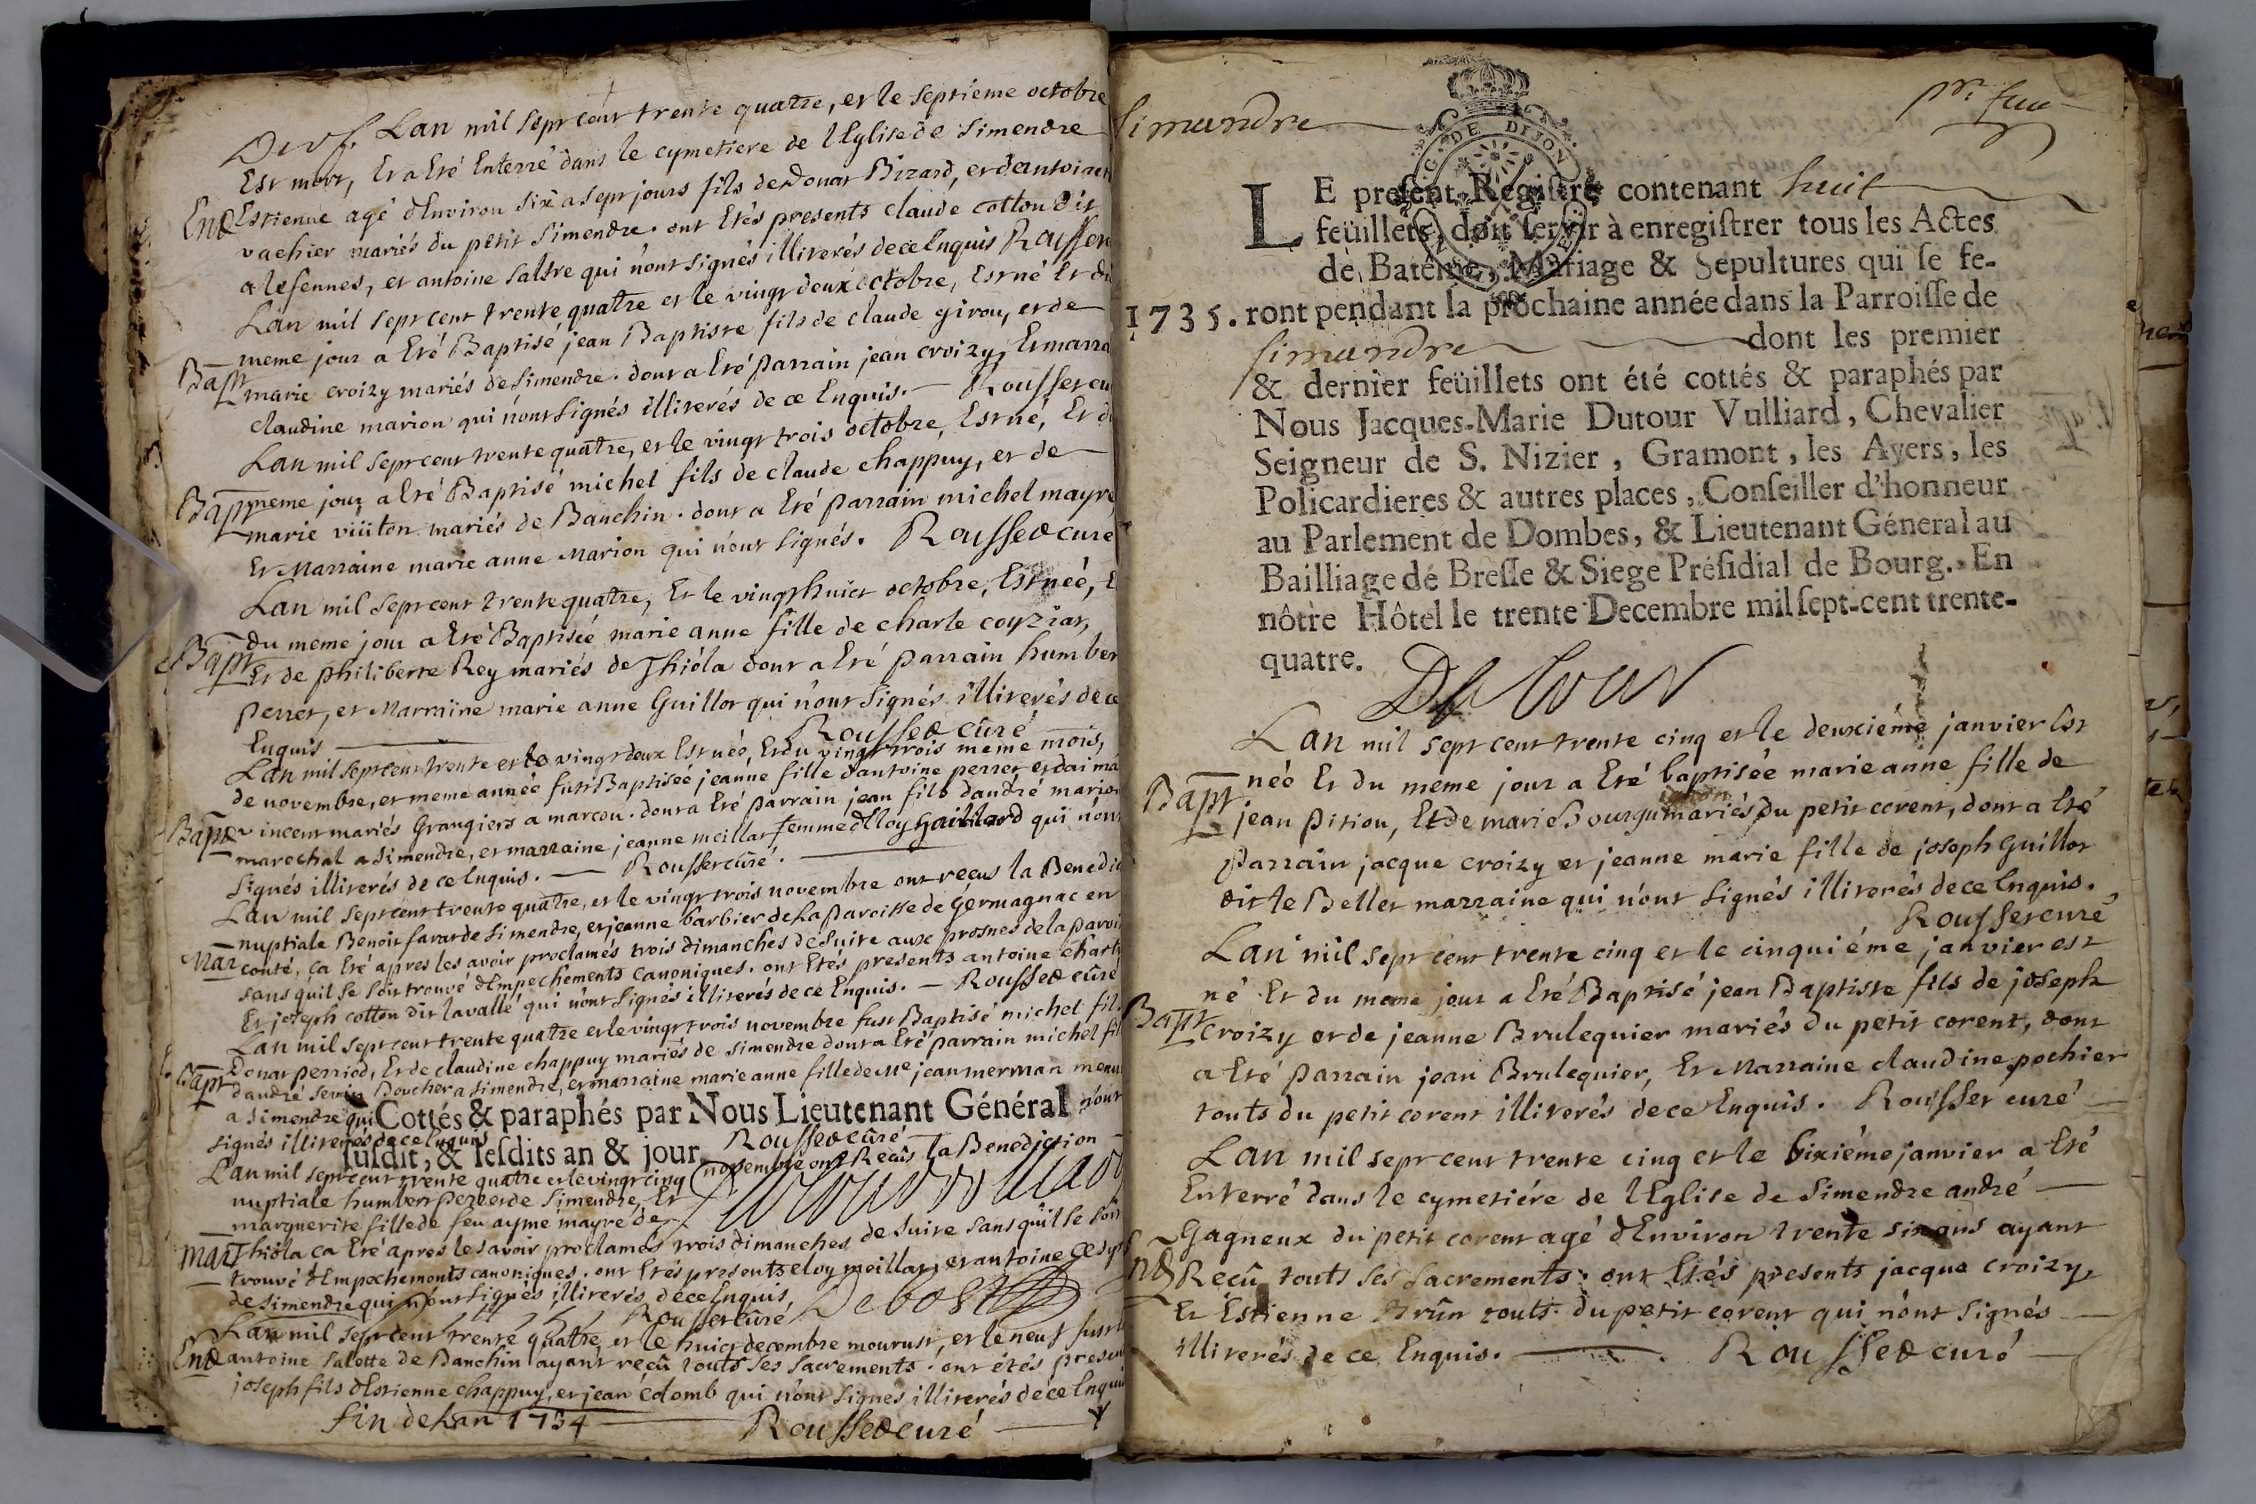 Lan mil sept cent trente quatre, et le septieme octobre
Est mort, Et a Eté Enterré dans le cymetiere de lEglise de Simendre
End Estienne agé dEnviron six a sept jours fils de Donat Bizard, et dantoinet
vachier mariés du petit Simendre. ont Etés presents claude cotton dit
alesennes, et antoine salstre qui n'ont signés illiterés de ce Enquis Rousset
Lan mil sept cent trente quatre et le vingt deux octobre, Est né Et du
meme jour a Eté Baptisé jean Baptiste fils de claude girou, et de
Bapt marie croizy mariés de Simendre. dont a Eté parrain jean croizy, Et marra
claudine marion qui n'ont signés illiterés de ce Enquis. Rousset cu
Lan mil sept cent trente quatre, et le vingt trois octobre, Est né, Et d
Bapt meme jour a Eté Baptisé michel fils de claude chappuy, et de
marie viüiton mariés de Banchin. dont a Eté parrain michel mayre
Et Marraine marie anne Marion qui n'ont signés. Rousset curé
Lan mil sept cent trente quatre, Et le vingt huict octobre, Est née, E
du meme jour a Eté Baptisée marie anne fille de charle coyziat,
Bapt Et de philiberte Rey mariés de Thióla dont a Eté parrain humber
perret, et Marraine marie anne Guillot qui n'ont signés illiterés de ce
Enquis Rousset curé
Lan mil sept cent trente et le vingt deux Est née, Et du vingt trois meme mois,
de novembre, et meme année fust Baptisée jeanne fille dantoine perret et daimá
Bapt vincent mariés Grangiers a marcou. dont a Eté parrain jean fils dandré marion
marechal a Simendre, et marraine jeanne meillat femme dEloy Gaillard qui n'ont
signés illiterés de ce Enquis. Rousset curé.
Lan mil sept cent trente quatre, et le vingt trois novembre ont recus la Benedic
nuptiale Benoit favar de Simendre, et jeanne barbier de La paroisse de Germagnac en
Mar conté, ca Eté apres les avoir proclamés trois dimanches de suite aux prosnes de la paroi
sans quil se soit trouvé dEmpechements canoniques. ont Etés presents antoine chart
Et joseph cotton dit lavallé qui n'ont signés illiterés de ce Enquis. Rousset curé
Lan mil sept cent trente quatre et le vingt trois novembre fust Baptisé michel fils
Bapt Donat perriod, Et de claudine chappuy mariés de simendre dont a Eté parrain michel fil
dandré Boucher a Simendre, et marraine marie anne fille de Me jean merman menu
a Simendre qui Cottés & paraphés par Nous Lieutenant Général n'ont
signés illiterés de ce Enquis Rousset curé
susdit, & lesdits an & jour.
Lan mil sept cent trente quatre et le vingt cinq novembre ont Recûs La Benediction
nuptiale humbert perret de Simendre, Et
marguerite fille de feu ayme mayre de
Mar Thióla ca Eté apres les avoir proclamés trois dimanches de suite sans quil se soit
trouvé dEmpechements canoniques. ont Etés presents eloy meillat, et antoine
de Simendre qui n'ont signés illiterés de ce Enquis
Rousset curé Debost
Lan mil sept cent trente quatre et le huict decembre mourust, et le neuf fust
End antoine salette de Banchin ayant reçû touts ses sacrements. ont étés presen
joseph fils dEstienne chappuy, et jean colomb qui n'ont signes illiterés de ce Enquis
fin de Lan 1734 Rousset curé
Simandre
LE present Registre contenant huit
feüillets, doit servir à enregistrer tous les Actes
de Batême, Mariage & Sepultures qui se fe-
1735. ront pendant la prochaine année dans la Parroisse de
Simandre dont les premier
& dernier feüillets ont été cottés & paraphés par
Nous Jacques-Marie Dutour Vulliard, Chevalier
Seigneur de S. Nizier, Gramont, les Ayers, les
Policardieres & autres places, Conseiller d'honneur
au Parlement de Dombes, & Lieutenant Géneral au
Bailliage de Bresse & Siege Présidial de Bourg. En
nôtre Hôtel le trente Decembre mil sept-cent trente-
quatre.
Dutour
Lan mil sept cent trente cinq et le deuxiéme janvier Est
née Et du meme jour a Eté baptisée marie anne fille de
Bapt jean pition, Et de marie mariés du petit corent, dont a Eté
parrain jacque croizy et jeanne marie fille de joseph Guillot
dit le Bellet marraine qui n'ont signés illiterés de ce Enquis.
Rousset curé
Lan mil sept cent trente cinq et le cinquiéme janvier est
né Et du meme jour a Eté Baptisé jean Baptiste fils de joseph
Bapt croizy et de jeanne Brulequier mariés du petit corent, dont
a Eté parrain jean Brulequier, Et Marraine claudine pochier
touts du petit corent illiterés de ce Enquis. Rousset curé
Lan mil sept cent trente cinq et le sixiéme janvier a Eté
Enterré dans le cymetiére de lEglise de Simendre andré
Gagneux du petit corent agé dEnviron trente six ans ayant
End Reçû touts ses sacrements. ont Etés presents jacque croizy,
Et Estienne Brûn touts du petit corent qui n'ont signés
illiterés de ce Enquis. Rousset curé